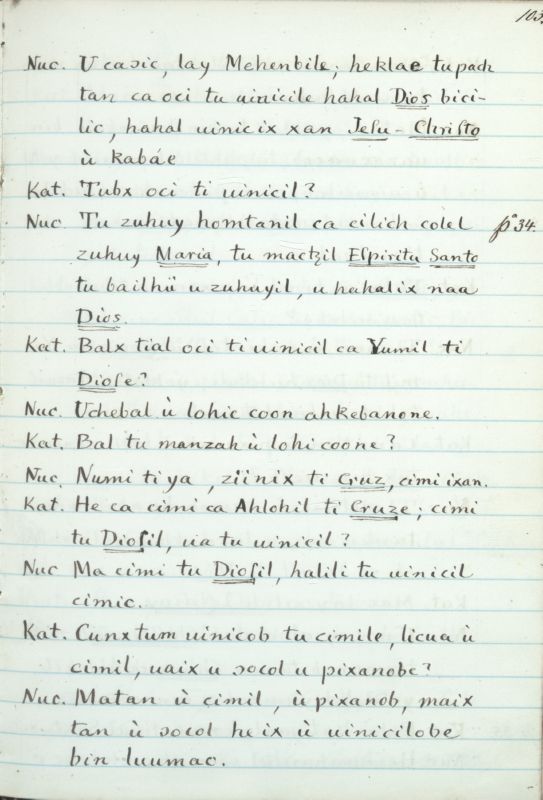 103.
Nuc. U caɔic, lay Mehenbile; heklae tu pach
tan ca oci tu uinicile hahal Dios bici-
lic, hahal uinic ix xan Jesu-Christo
ù kabáe
Kat. Tubx oci ti uinicil?
Nuc. Tu zuhuy homtanil ca cilich colel
pº 34.
zuhuy Maria, tu mactzil Espiritu Santo
tu bailhii u zuhuyil, u hahalix naa
Dios.
Kat. Balx tial oci ti uinicil ca Yumil ti
Diose?
Nuc. Uchebal ù lohic coon ahkebanone.
Kat. Bal tu manzah ù lohicoone?
Nuc. Numi ti ya, ziinix ti Cruz, cimi ixan.
Kat. He ca cimi ca Ahlohil ti Cruze; cimi
tu Diosil, ua tu uinicil?
Nuc Ma cimi tu Diosil, halili tu uinicil
cimic.
Kat. Cunxtum uinicob tu cimile, licua ù
cimil, uaix u ɔocol u pixanobe?
Nuc. Matan ù cimil, ù pixanob, maix
tan ù ɔocol heix ù uinicilobe
bin luumac.